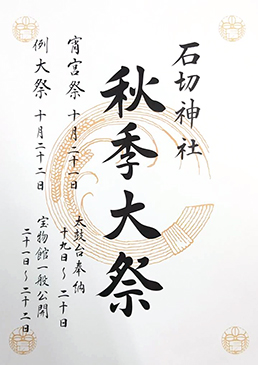 石切神社
秋季大祭
宵宮祭 十月二十一日
例大祭 十月二十二日
太鼓台奉納
十九日～二十日
宝物館一般公開
二十一日～二十二日